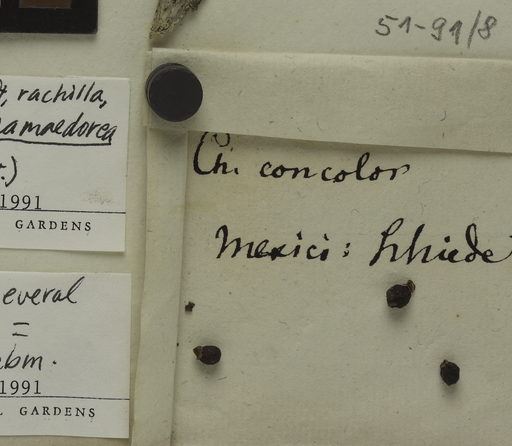 51-91/8
rachilla,
amaedorea
1991
GARDENS
Ch. concolor
Mexico: Schiede
everal
=
bm.
1991
GARDENS